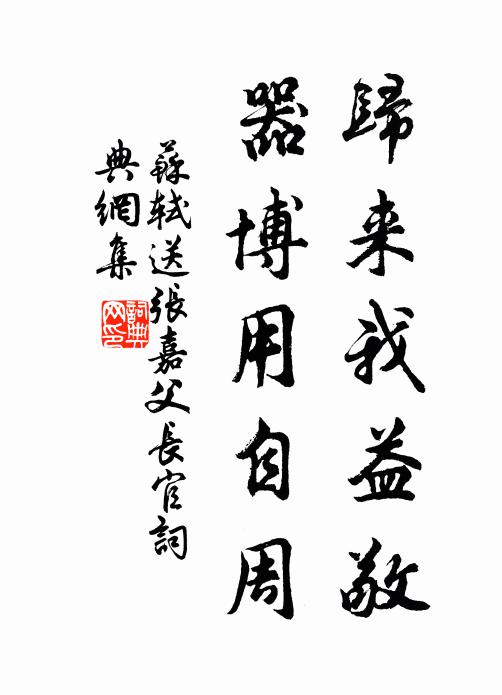 歸来我益敬
器博用自周
蘇軾送張嘉父長官詞
典網集
詞典
网印